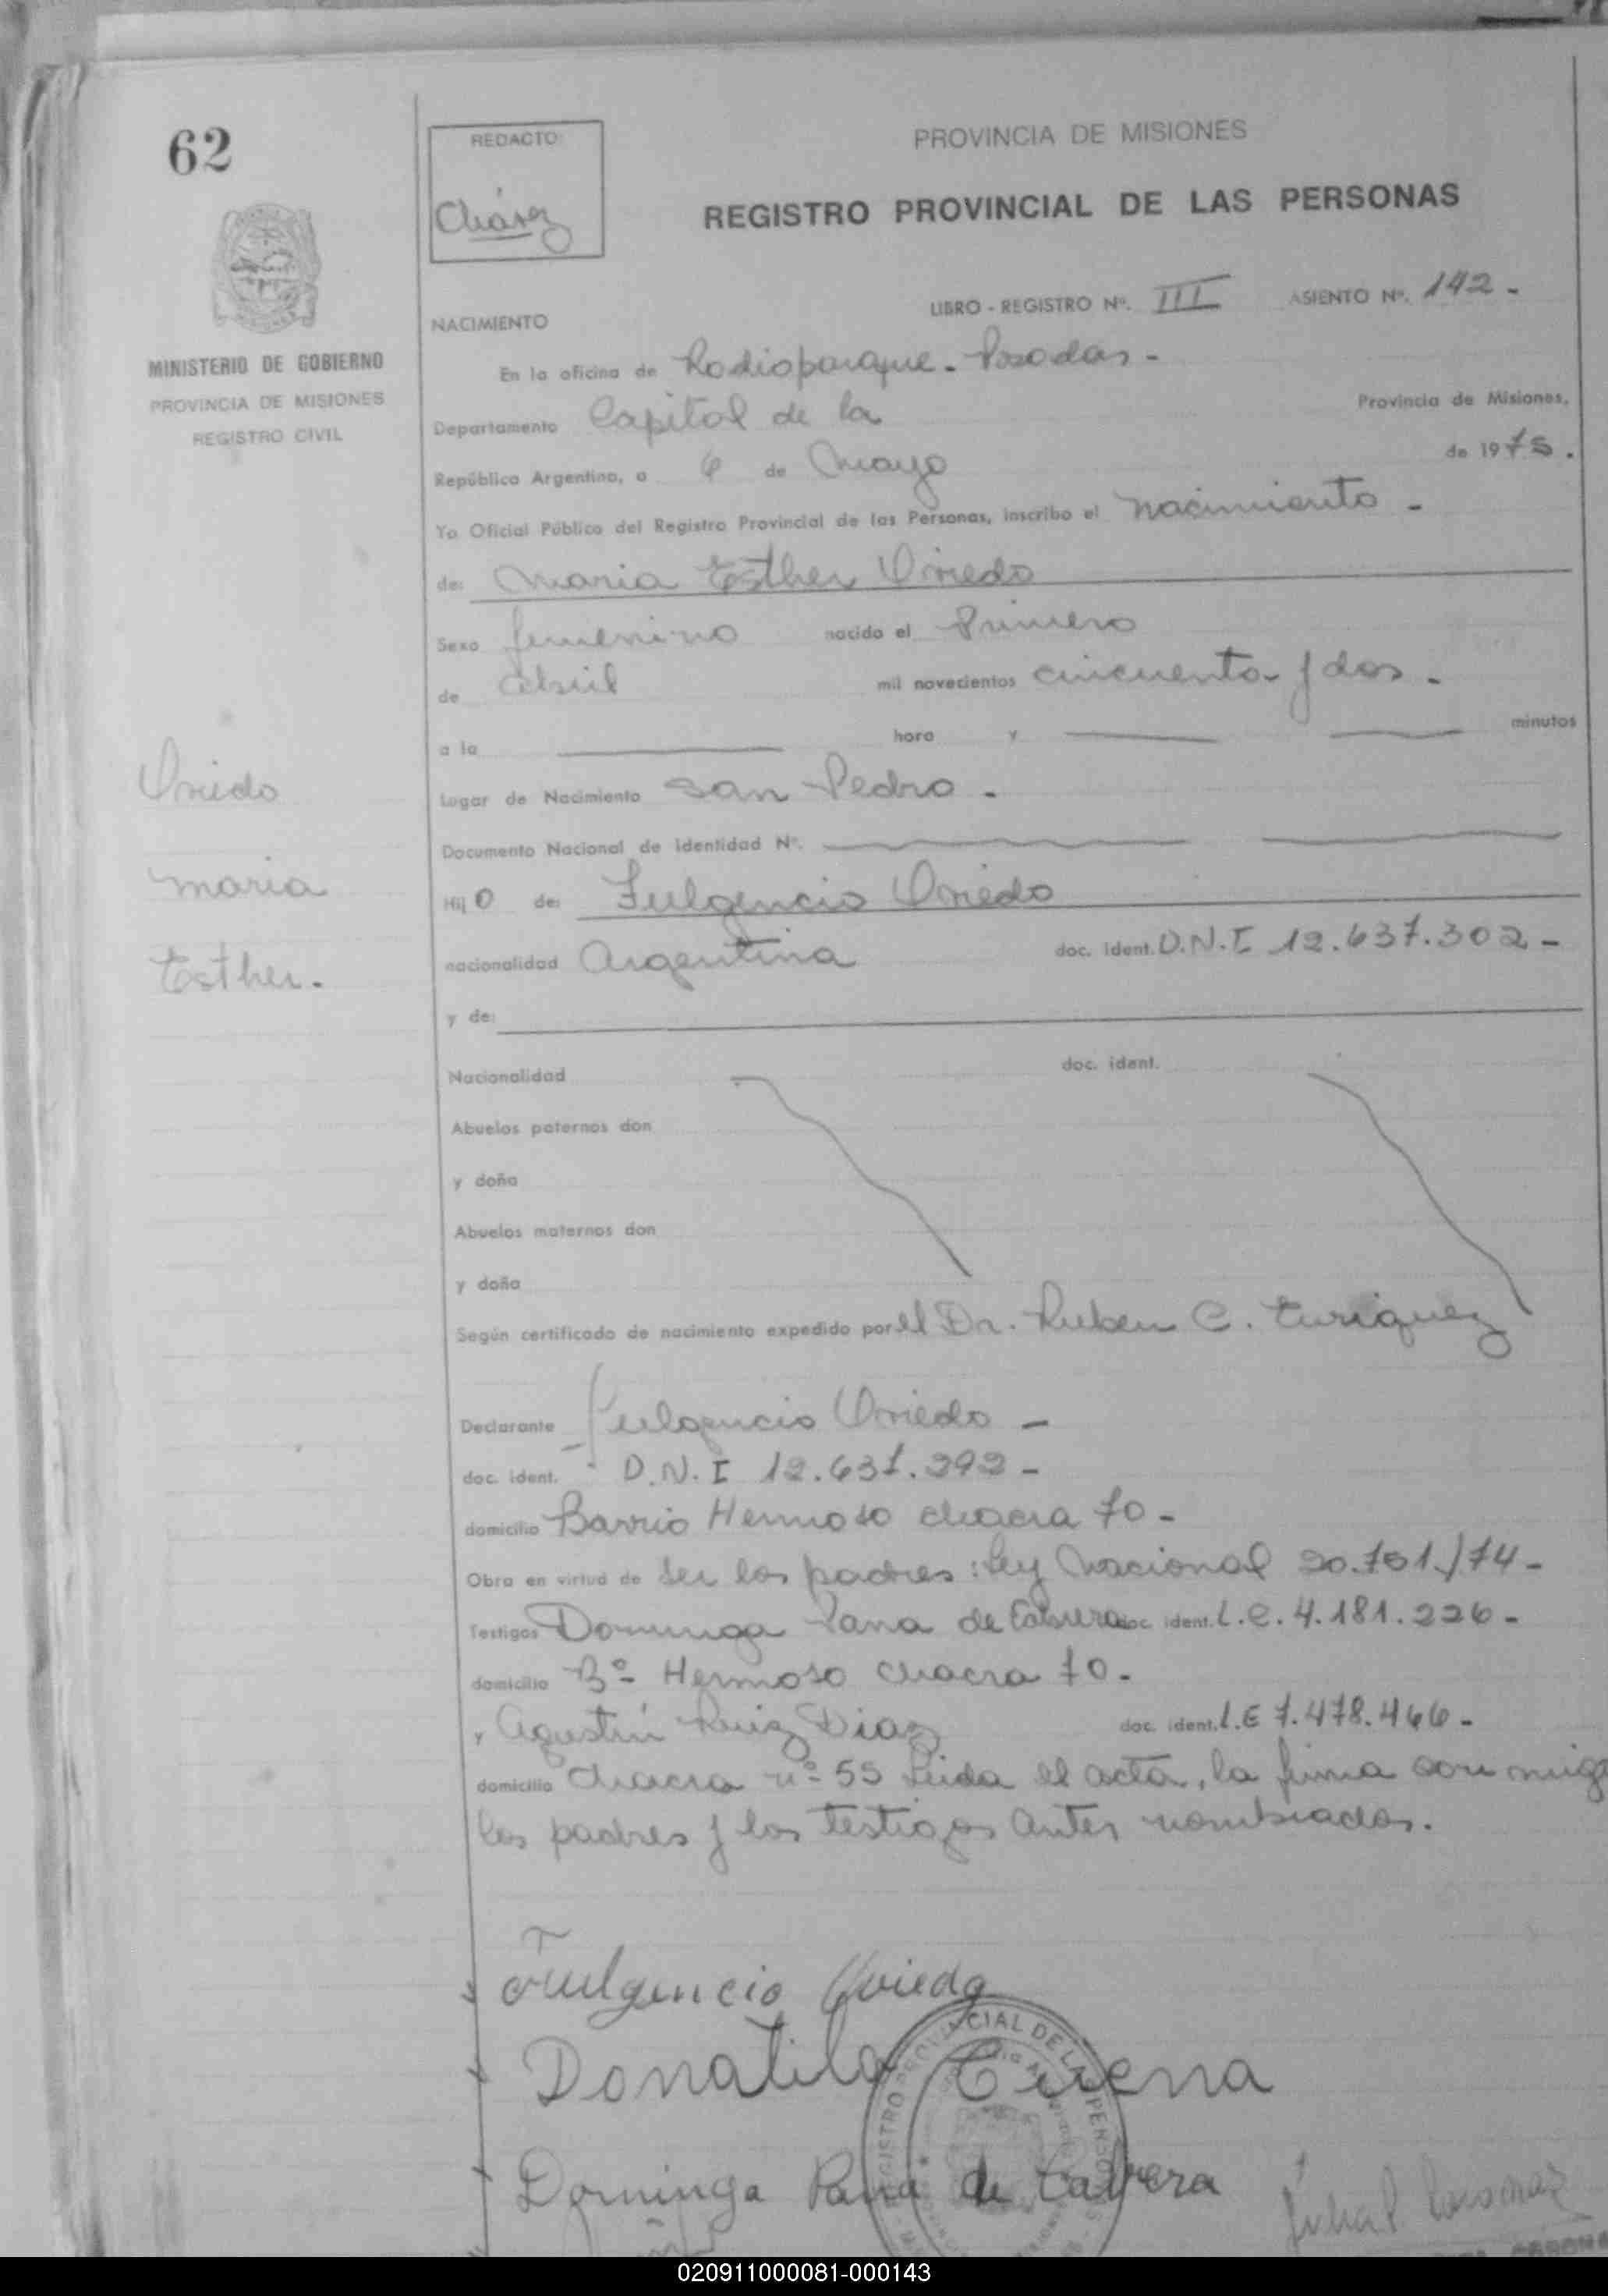 62
REDACTO:
Chávez
PROVINCIA DE MISIONES
REGISTRO PROVINCIAL DE LAS PERSONAS
LIBRO - REGISTRO Nº. III ASIENTO Nº. 142 -
NACIMIENTO
MINISTERIO DE GOBIERNO
PROVINCIA DE MISIONES
REGISTRO CIVIL
En la oficina de Radioparque - Posadas -
Departamento Capital de la Provincia de Misiones,
República Argentina, a 6 de Mayo de 1975.
Yo Oficial Público del Registro Provincial de las Personas, inscribo el nacimiento -
de: Maria Esther Oviedo
Sexo femenino nacido el Primero
de Abril mil novecientos cincuenta y dos -
a la hora y minutos
Oviedo
Maria
Esther.
Lugar de Nacimiento San Pedro -
Documento Nacional de Identidad Nº.
Hij o de: Fulgencio Oviedo
nacionalidad Argentina doc. ident. D.N.I 12.637.302 -
y de:
Nacionalidad doc. ident.
Abuelos paternos don
y doña
Abuelos maternos don
y doña
Según certificado de nacimiento expedido por el Dr. Ruben C. Enriquez
Declarante Fulgencio Oviedo -
doc. ident. D.N.I 12.637.292 -
domicilio Barrio Hermoso chacra 70 -
Obra en virtud de ser los padres: Ley Nacional 20.751/74 -
Testigos Dominga Pana de Cabrera doc. ident. L.C. 4.181.226 -
domicilio Bº Hermoso chacra 70 -
y Agustín Ruiz Diaz doc. ident. L.E 7.478.466 -
domicilio Chacra nº 55 Leida el acta, la firma con migo
los padres y los testigos antes nombrados.
Fulgencio Oviedo
Donatila
Dominga Pana de Cabrera
REGISTRO PROVINCIAL DE LAS PERSONAS
020911000081-000143